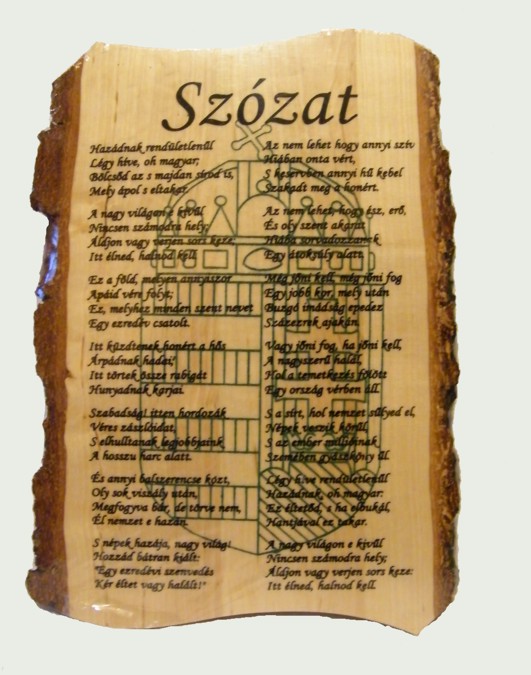 Szózat
Hazádnak rendületlenűl
Légy híve, oh magyar;
Bölcsőd az s majdan sírod is,
Mely ápol s eltakar.
A nagy világon e kivűl
Nincsen számodra hely;
Áldjon vagy verjen sors keze;
Itt élned, halnod kell.
Ez a föld, melyen annyiszor
Apáid vére folyt;
Ez, melyhez minden szent nevet
Egy ezredév csatolt.
Itt küzdtenek honért a hős
Árpádnak hadai;
Itt törtek össze rabigát
Hunyadnak karjai.
Szabadság! itten hordozák
Véres zászlóidat,
S elhulltanak legjobbjaink
A hosszu harc alatt.
És annyi balszerencse közt,
Oly sok viszály után,
Megfogyva bár, de törve nem,
Él nemzet e hazán.
S népek hazája, nagy világ!
Hozzád bátran kiált:
"Egy ezredévi szenvedés
Kér éltet vagy halált!"
Az nem lehet hogy annyi szív
Hiában onta vért,
S keservben annyi hű kebel
Szakadt meg a honért.
Az nem lehet, hogy ész, erő,
És oly szent akarat
Hiába sorvadozzanak
Egy átoksúly alatt.
Még jőni kell, még jőni fog
Egy jobb kor, mely után
Buzgó imádság epedez
Százezrek ajakán.
Vagy jőni fog, ha jőni kell,
A nagyszerű halál,
Hol a temetkezés fölött
Egy ország vérben áll.
S a sírt, hol nemzet sűlyed el,
Népek veszik körűl,
S az ember millióinak
Szemében gyászköny űll.
Légy híve rendületlenűl
Hazádnak, oh magyar:
Ez éltetőd, s ha elbukál,
Hantjával ez takar.
A nagy világon e kivűl
Nincsen számodra hely;
Áldjon vagy verjen sors keze:
Itt élned, halnod kell.